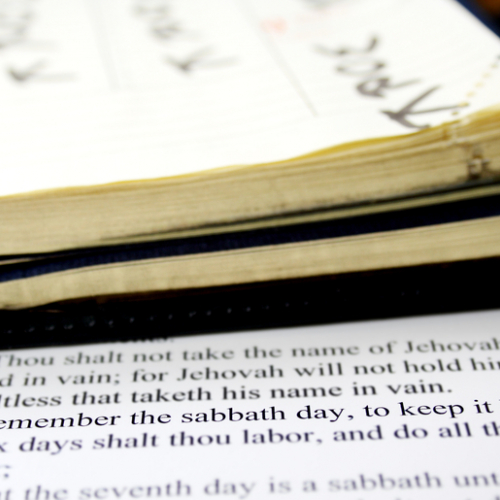 Thou shalt not take the name of Jehovah
d in vain; for Jehovah will not hold hi
ltless that taketh his name in vain.
emember the sabbath day, to keep it
x days shalt thou labor, and do all th
;
t the seventh day is a sabbath unt